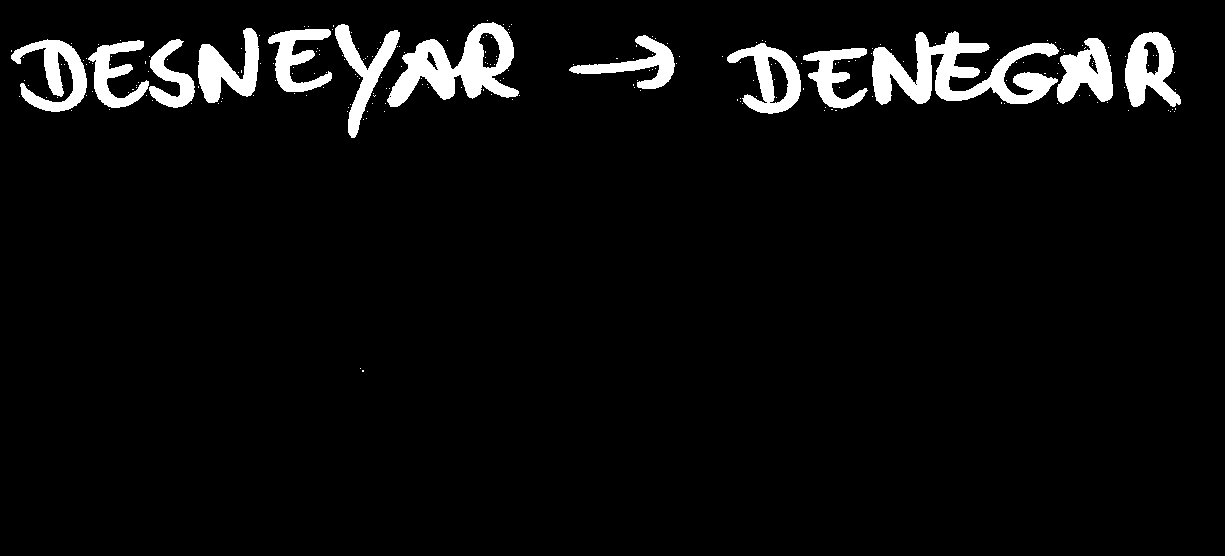 DESNEYAR → DENEGAR